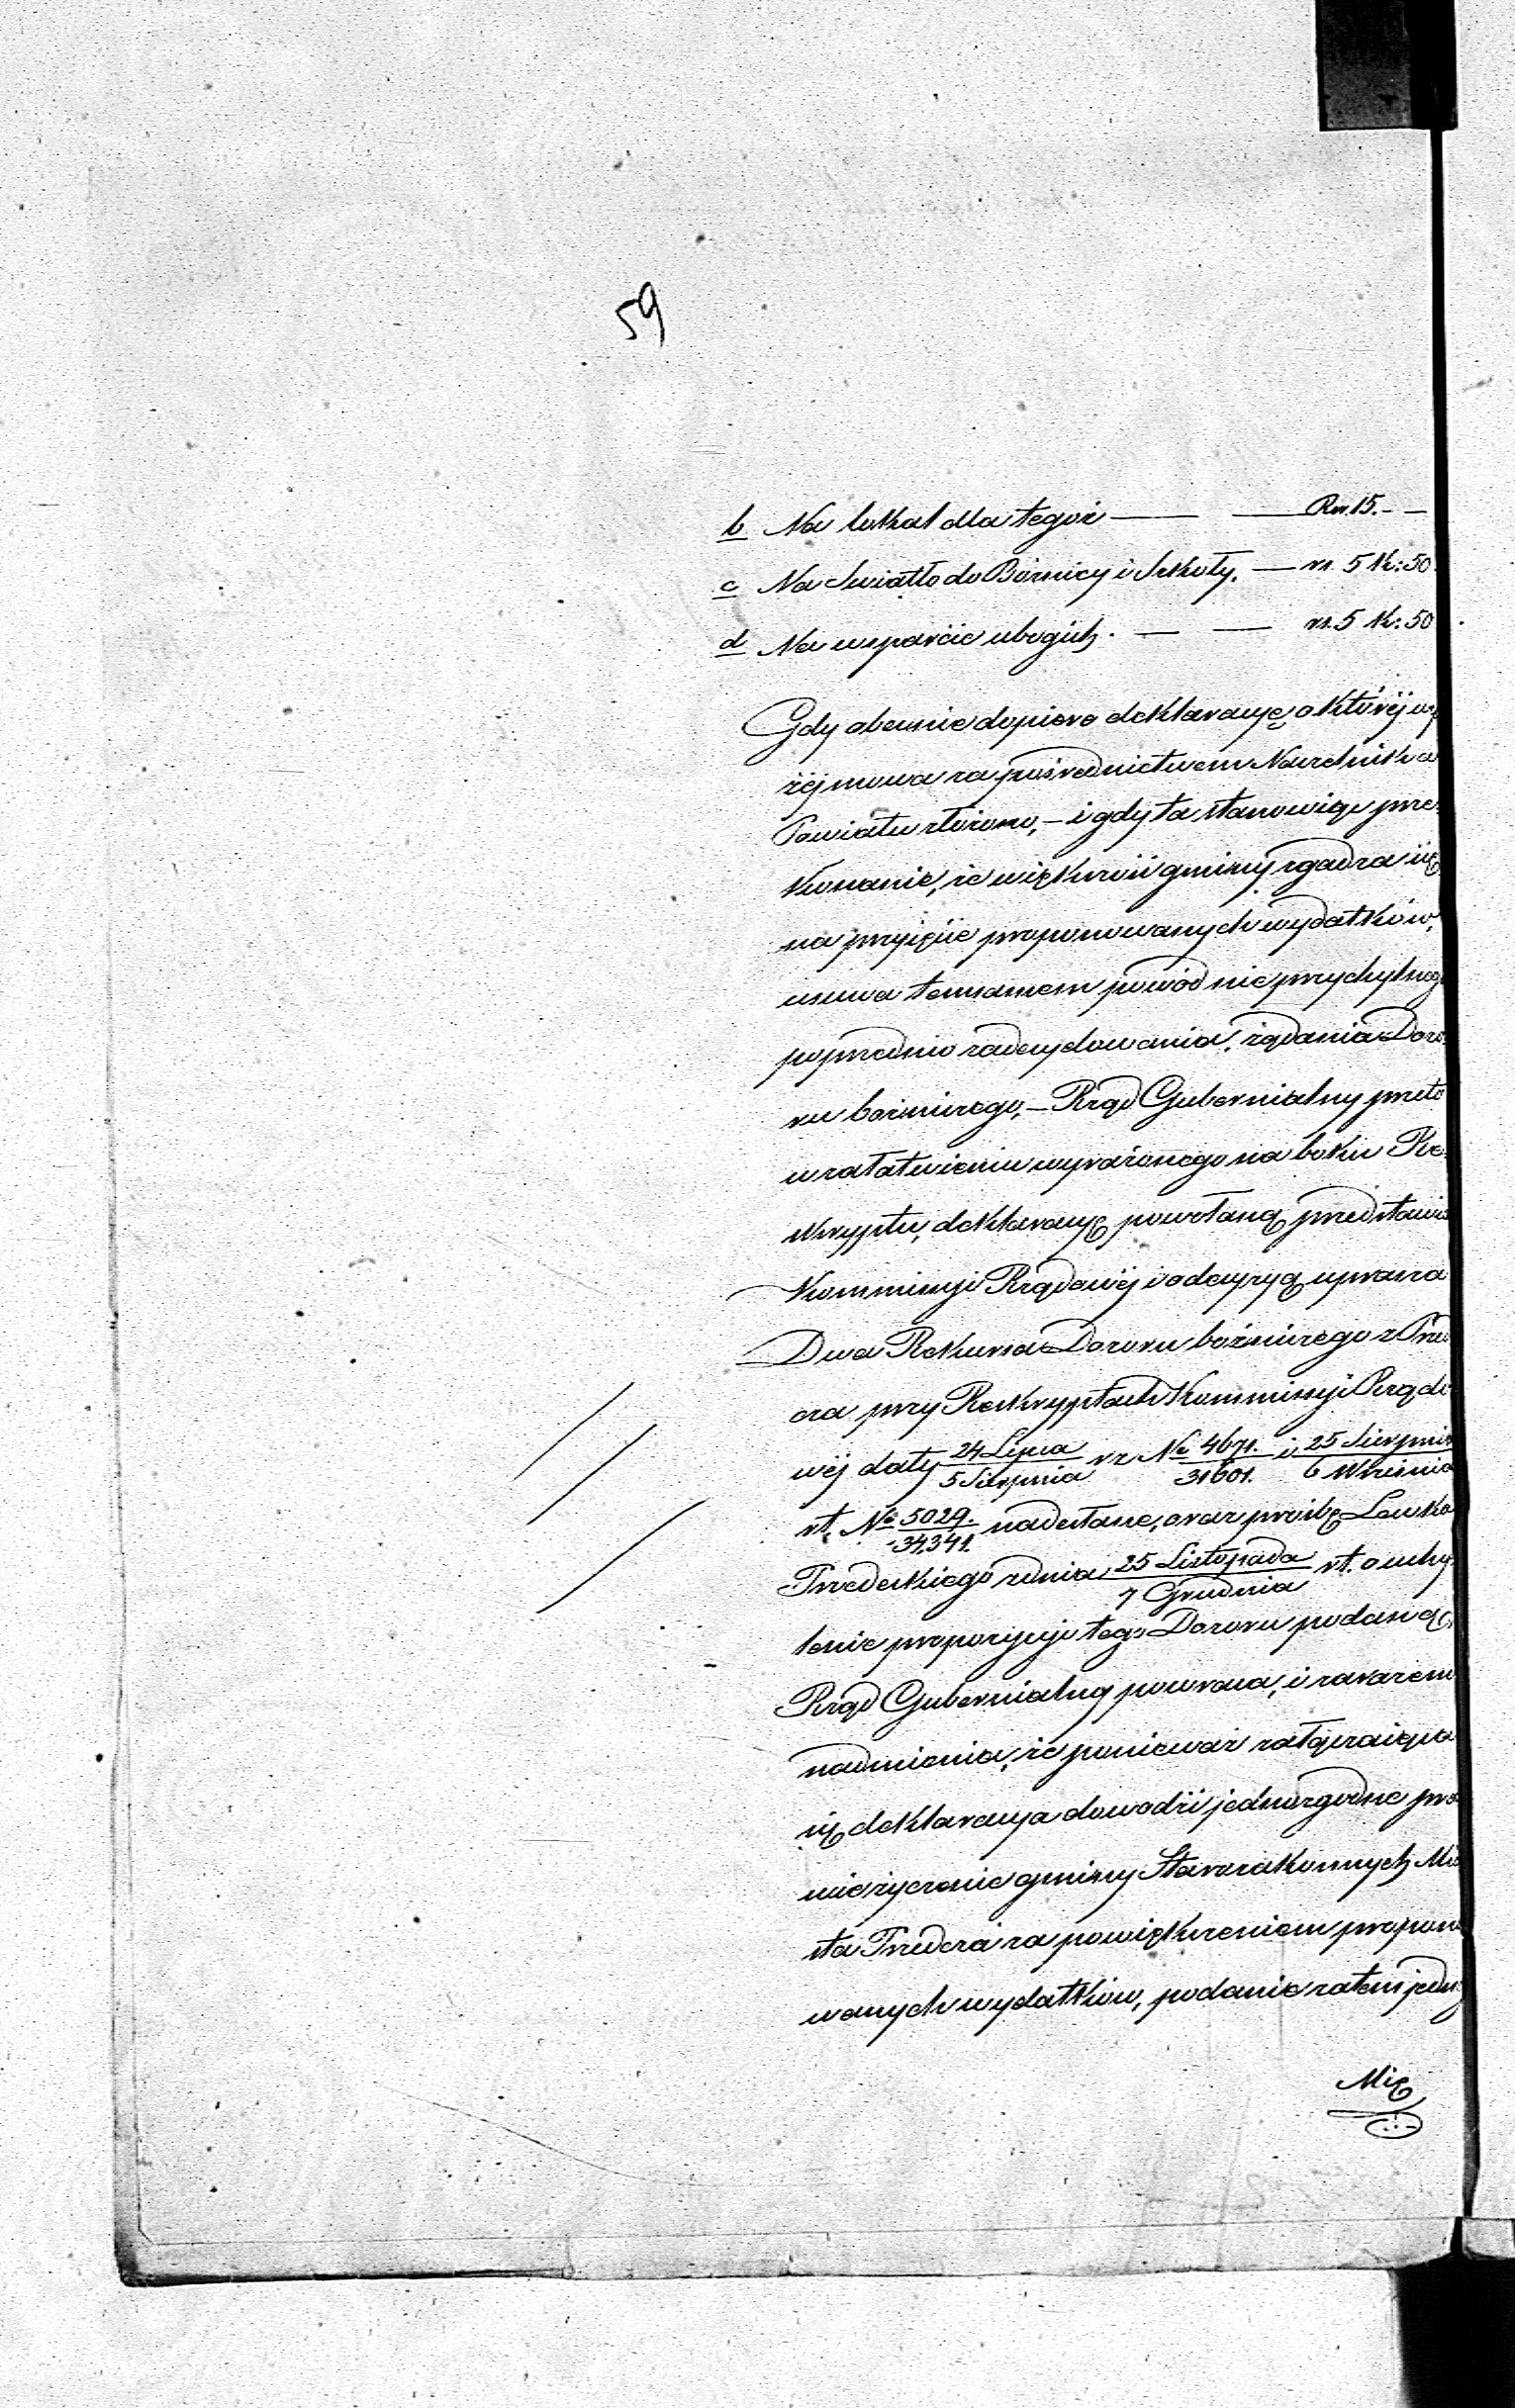 59
b Na lokal dla tegoż — — Rsr. 15. - —
c Na Swiatło do Bóżnicy i Szkoły. — rs. 5 k: 50
d Na wsparcie ubogich. — — rs. 5 k: 50.
Gdy obecnie dopiero deklaracyę o którėj wy
żėj mowa za pośrednictwem Naczelnika
Powiatu złożono, — i gdy ta stanowiąc prze-
konanie, że większość gminy zgadza się
na przyjęcie proponowanych wydatków,
usuwa temsamem powód nieprzychylnego
poprzednio zadecydowania, żądania Dozo-
ru bóżniczego, — Rząd Gubernialny przeto
w załatwieniu wyrażonego na boku Re-
skryptu, deklaracyę powołaną przedstawia
Kommissyi Rządowėj i o decyzyą uprasza
Dwa Rekursa Dozoru bóżniczego z Przed
cza przy Reskryptach Kommissyi Rządo-
wėj daty 24 Lipca / 5 Sierpnia rz № 4671. / 31601. i 25 Sierpnia / 6 Września
rt. № 5029. / 34,341. nadesłane, oraz prośbę Lewka
Przedeckiego z dnia 25 Listopada / 7 Grudnia rt. o uchy-
lenie propozycyi tego Dozoru podaną,
Rząd Gubernialny powraca, i zarazem
nadmienia, że ponieważ załączająca
się deklaracya dowodzi jednozgodne pra
wie życzenie gminy Starozakonnych Mia
sta Przedcza za powiększeniem propono
wanych wydatków, podanie zatem jedn
Mię